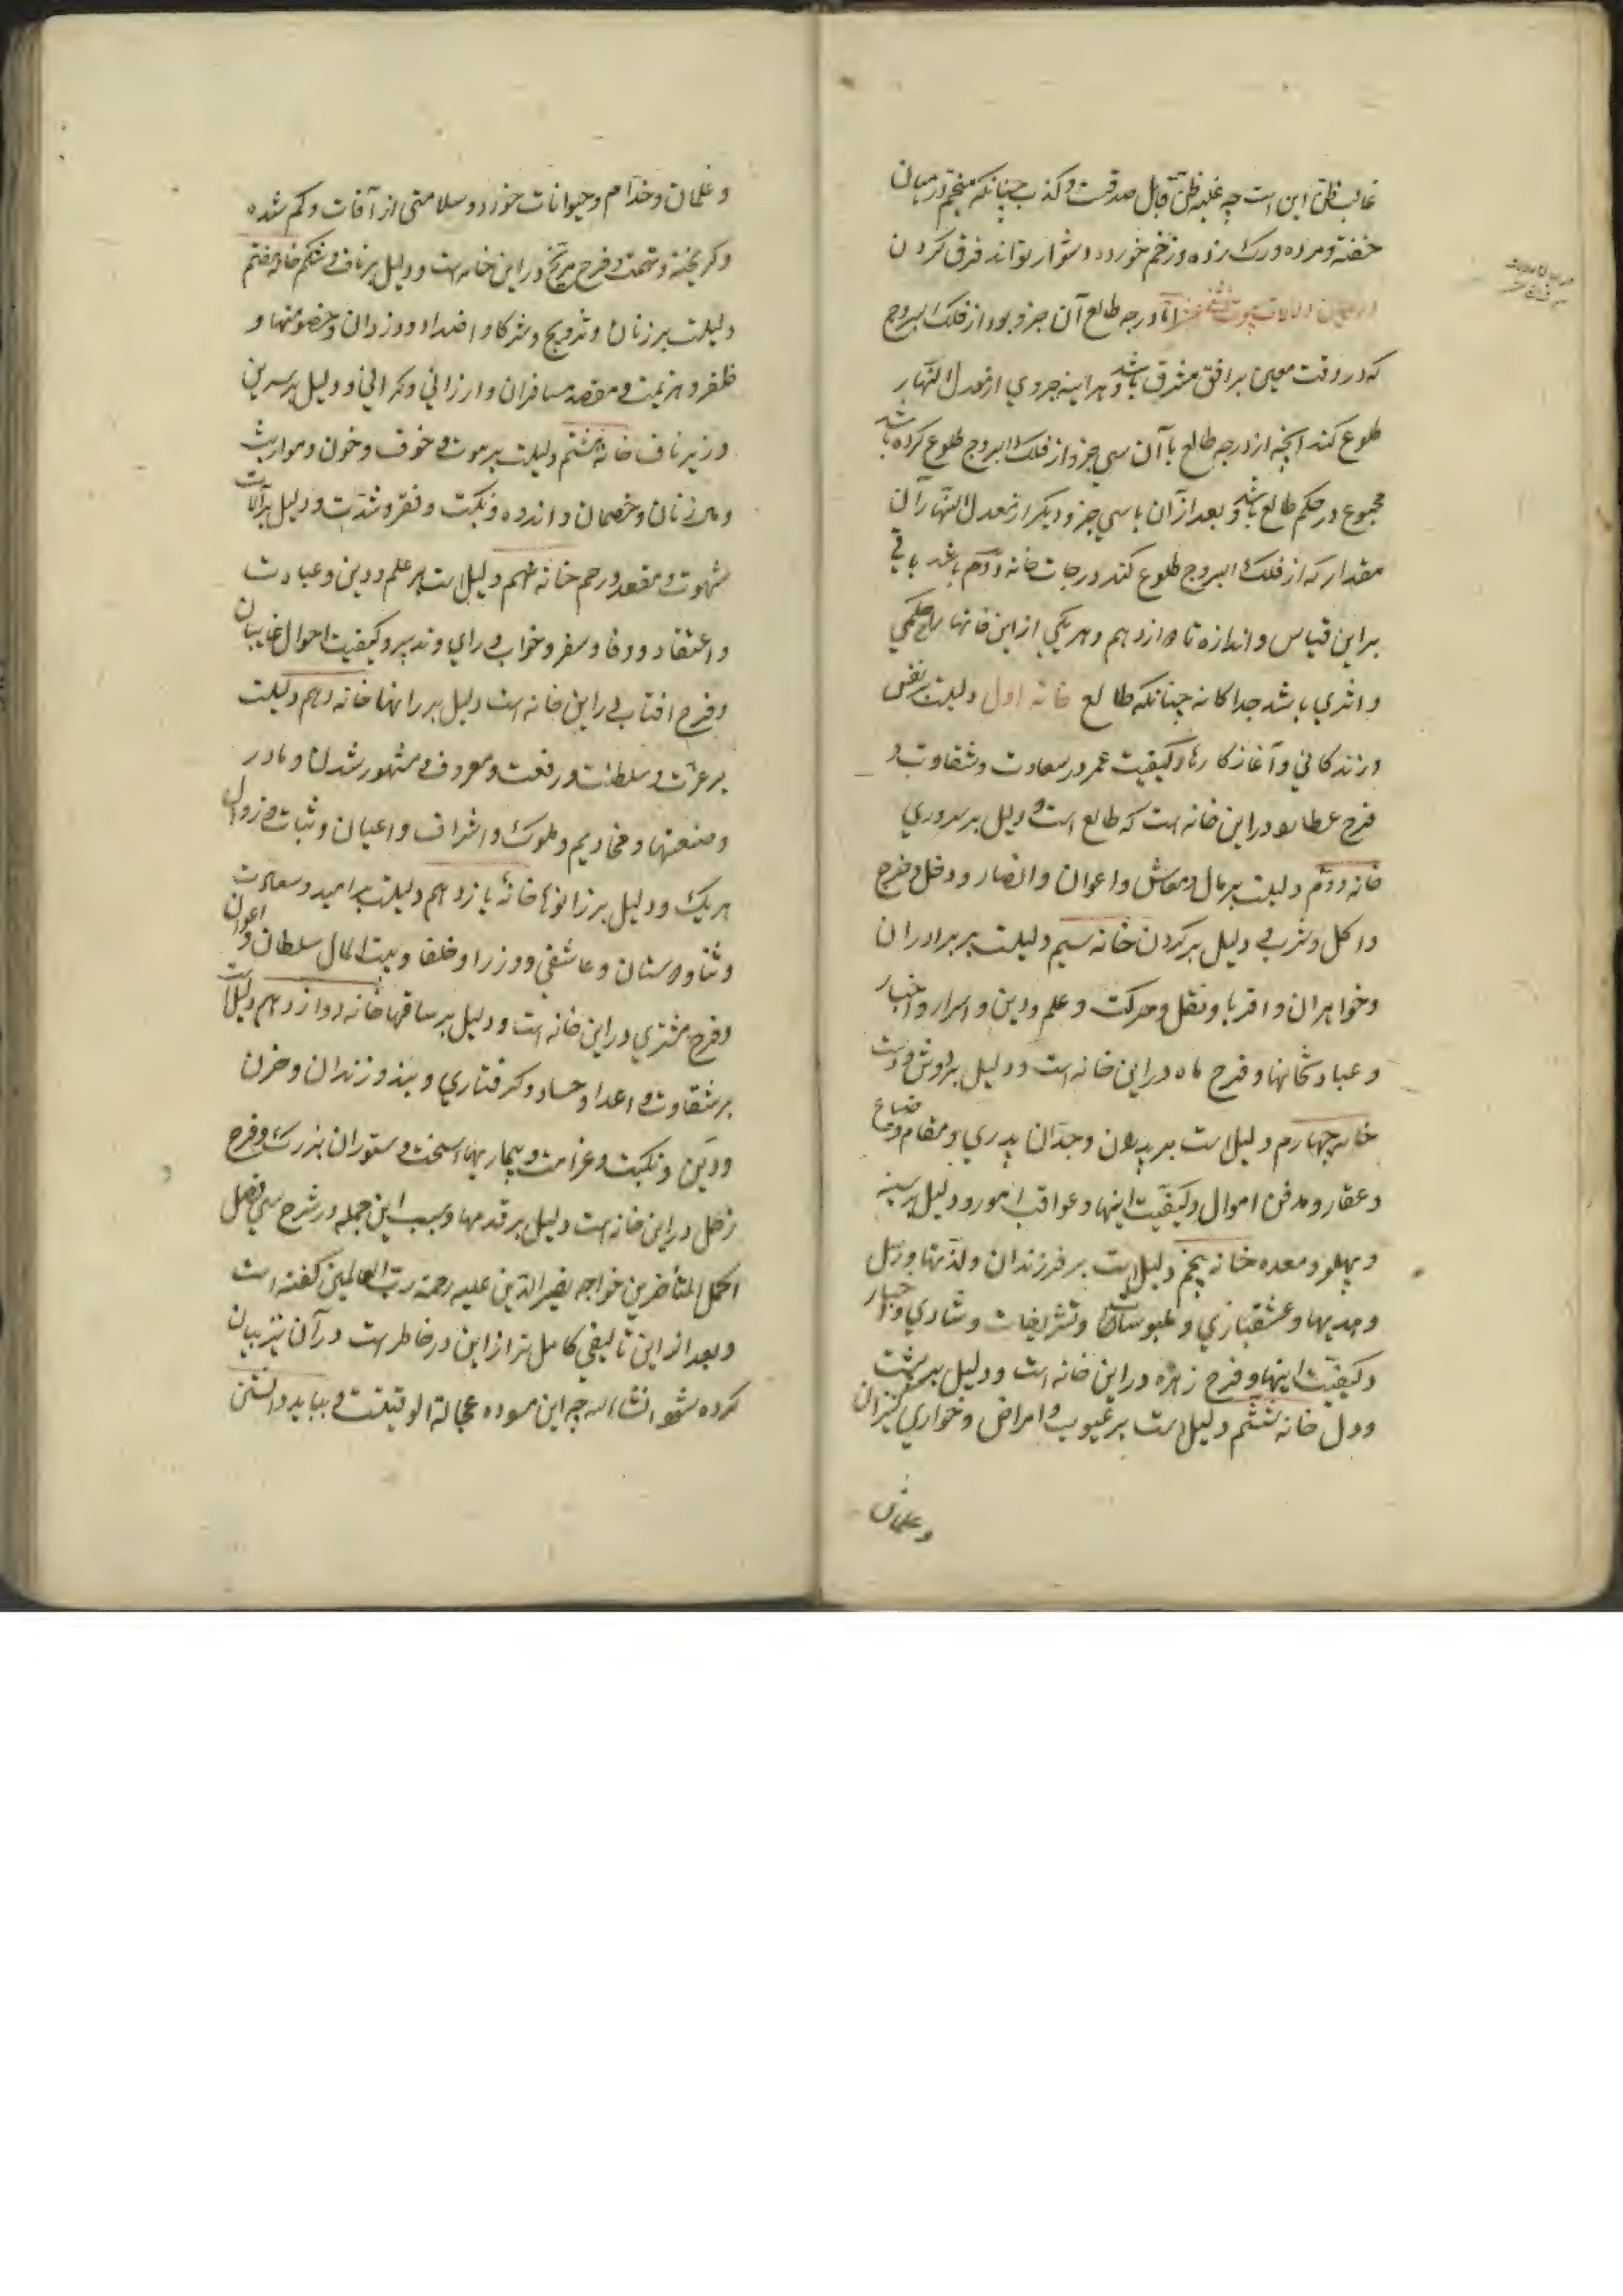 غالب ظن این است چه غلبه ظن قابل صدقست و کذب چنانکه منجم در میان
خفته و مرده و رک زده و زخم خورده دشوار تواند فرق کردن
در بیان دلالات بیوت اما درجه طالع آن جزو بود از فلک البروج
که در وقت معین بر افق مشرق باشد و هر آینه جزوی از معدل النهار
طلوع کند آنچه از درجه طالع با آن سی جزو از فلک البروج طلوع کرده باشد
مجموع در حکم طالع باشد و بعد از آن با سی جزو دیگر از معدل النهار آن
مقدار که از فلک البروج طلوع کند درجات خانه دوم باشد باقی
بر این قیاس و اندازه تا دوازدهم و هر یکی از این خانها را حکمی
و اثری باشد جداکانه چنانکه طالع خانه اول دلیلست بر نفس
و زندکانی و آغاز کارها و کیفیت عمر در سعادت و شقاوت و
فرح عطارد در این خانه است که طالع است و دلیل بر سر و روی
خانه دوم دلیلست بر مال و معاش و اعوان و انصار و دخل و خرج
و اکل و شرب و دلیل بر کردن خانه سیم دلیلست بر برادران
و خواهران و اقربا و نقل و حرکت و علم و دین و اسرار و اخبار
و عبادتخانها و فرح ماه در این خانه است و دلیل بر دوش و دست
خانه چهارم دلیل است بر پدران و جدان پدری و مقام و متاع ضیاع
و عقار و مدفن اموال و کیفیت اینها و عواقب امور و دلیل بر سینه
و پهلو و معده خانه پنجم دلیل است بر فرزندان و لذتها و رسل
و هدیها و عشقبازی و ملبوسات و تشریفات و شادی و اخبار
و کیفیت اینها و فرح زهره در این خانه است و دلیل بر پشت
و دل خانه ششم دلیل است بر عیوب و امراض و خواری کنیزان
و غلمان
و غلمان و خدام و حیوانات خورد و سلامتی از آفات و کم شده
و کریخته و تهمت و فرح مریخ در این خانه است و دلیل بر ناف و شکم خانه هفتم
دلیلست بر زنان و تزویج و شرکا و اضداد و دزدان و خصومتها و
ظفر و هزیمت و مقصد مسافران و ارزانی و کرانی و دلیل بر سرین
و زیر ناف خانه هشتم دلیلست بر موت و خوف و خون و مواریث
و مال زنان و خصمان و اندوه و نکبت و فقر و شدت و دلیل بر آلات
شهوت و مقعد و رحم خانه نهم دلیل است بر علم و دین و عبادت
و اعتقاد و وفا و سفر و خواب و رای و تدبیر و کیفیت احوال غایبان
و فرح افتاب در این خانه است دلیل بر رانها خانه دهم دلیلست
بر عزت و سلطنت و رفعت و معروف و مشهور شدن و مادر
و صنعتها و مخادیم و ملوک و اشراف و اعیان و ثبات و زوال
هر یک و دلیل بر زانوها خانه یازدهم دلیلست بر امید و سعادت
و ثنا و دوستان و عاشقی و وزرا و خلفا و بیت المال سلطان و اعوان
و فرح مشتری در این خانه است و دلیل بر ساقها خانه دوازدهم دلیل است
بر شقاوت و اعدا و حساد و کرفتاری و بند و زندان و حزن
و دین و نکبت و غرامت و بیماریهاء سخت و ستوران بزرک و فرح
زحل در این خانه است دلیل بر قدمها و سبب این جمله در شرح سی فصل
اکمل المتأخرین خواجه نصیر الدین علیه رحمة رب العالمین کفته است
و بعد از این تالیفی کامل تر از این در خاطر است در آن نیز بیان
کرده شود انشاء الله چه این مسوده عجالة الوقتست و بباید دانستن